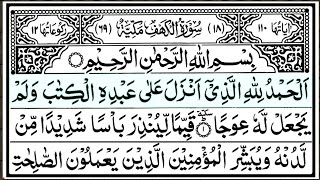 اٰیَاتُهَا ١١٠ (١٨) سُوْرَةُ الْكَهْفِ مَكِّيَّةٌ (٦٩) رُكُوْعَاتُهَا ١٢
بِسْمِ اللّٰهِ الرَّحْمٰنِ الرَّحِيْمِ
اَلْحَمْدُ لِلّٰهِ الَّذِيْۤ اَنْزَلَ عَلٰى عَبْدِهِ الْكِتٰبَ وَلَمْ
يَجْعَلْ لَّهٗ عِوَجًا ۜ قَيِّمًا لِّيُنْذِرَ بَاْسًا شَدِيْدًا مِّنْ
لَّدُنْهُ وَيُبَشِّرَ الْمُؤْمِنِيْنَ الَّذِيْنَ يَعْمَلُوْنَ الصّٰلِحٰتِ